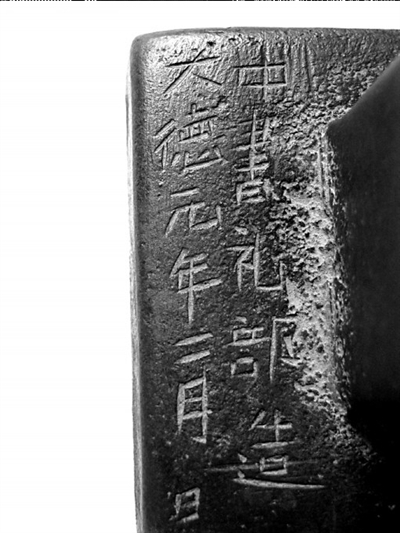 中書礼部造
大德元年二月　日